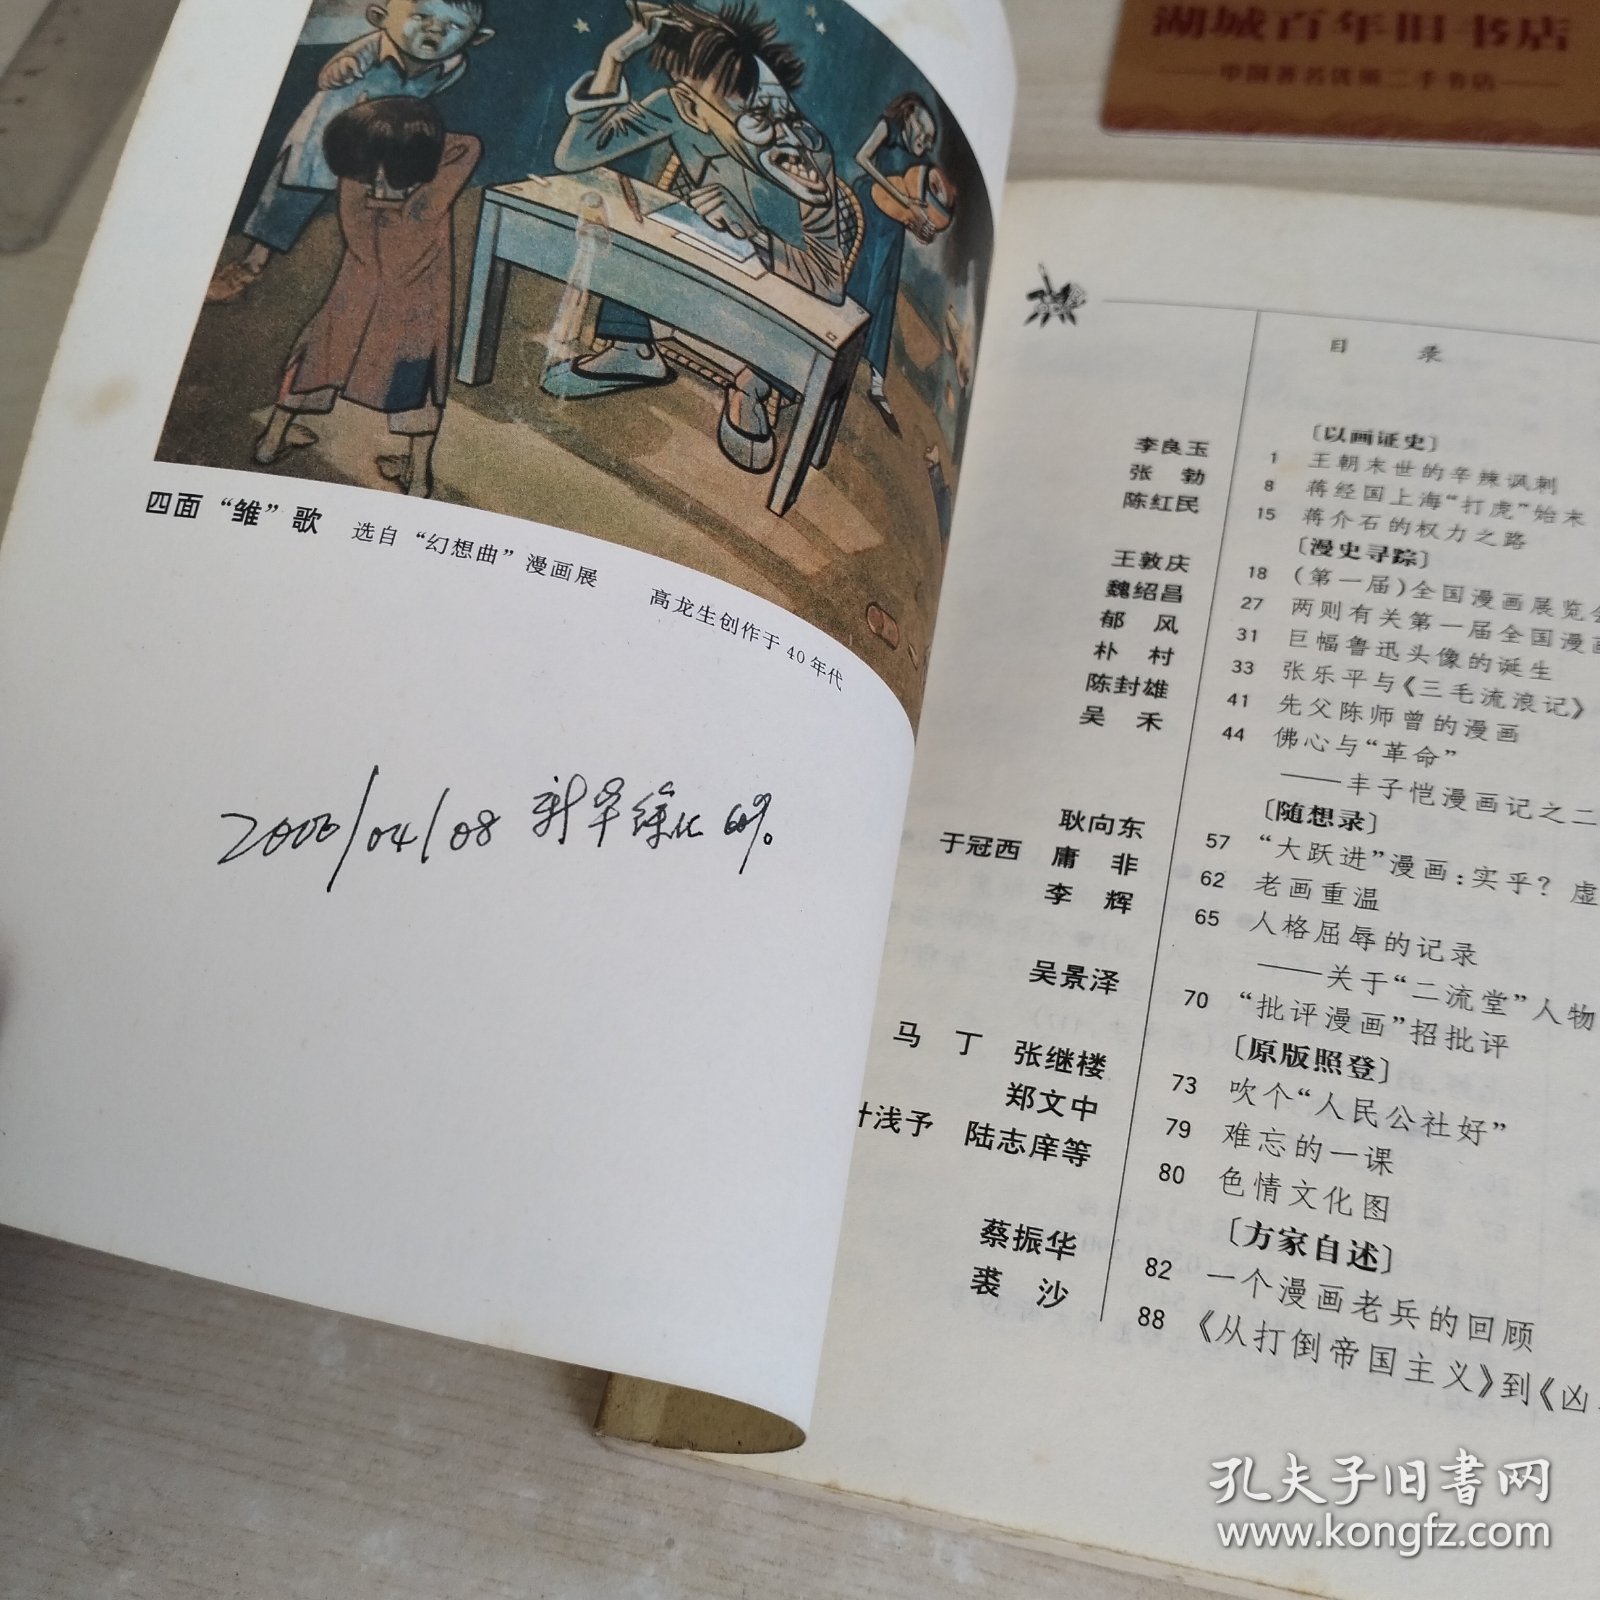 湖城百年旧书店
中国著名优质二手书店
四面“雏”歌 选自“幻想曲”漫画展 高龙生创作于40年代
2000/04/08 新华
目 录
〔以画证史〕
李良玉 1 王朝末世的辛辣讽刺
张 勃 8 蒋经国上海“打虎”始末
陈红民 15 蒋介石的权力之路
〔漫史寻踪〕
王敦庆 18 (第一届)全国漫画展览会
魏绍昌 27 两则有关第一届全国漫画
郁 风 31 巨幅鲁迅头像的诞生
朴 村 33 张乐平与《三毛流浪记》
陈封雄 41 先父陈师曾的漫画
吴 禾 44 佛心与“革命”
——丰子恺漫画记之二
〔随想录〕
耿向东 57 “大跃进”漫画:实乎?虚
于冠西 庸 非 62 老画重温
李 辉 65 人格屈辱的记录
——关于“二流堂”人物
吴景泽 70 “批评漫画”招批评
〔原版照登〕
马 丁 张继楼 73 吹个“人民公社好”
郑文中 79 难忘的一课
叶浅予 陆志庠等 80 色情文化图
〔方家自述〕
蔡振华 82 一个漫画老兵的回顾
裘 沙 88 《从打倒帝国主义》到《凶
孔夫子旧书网
www.kongfz.com